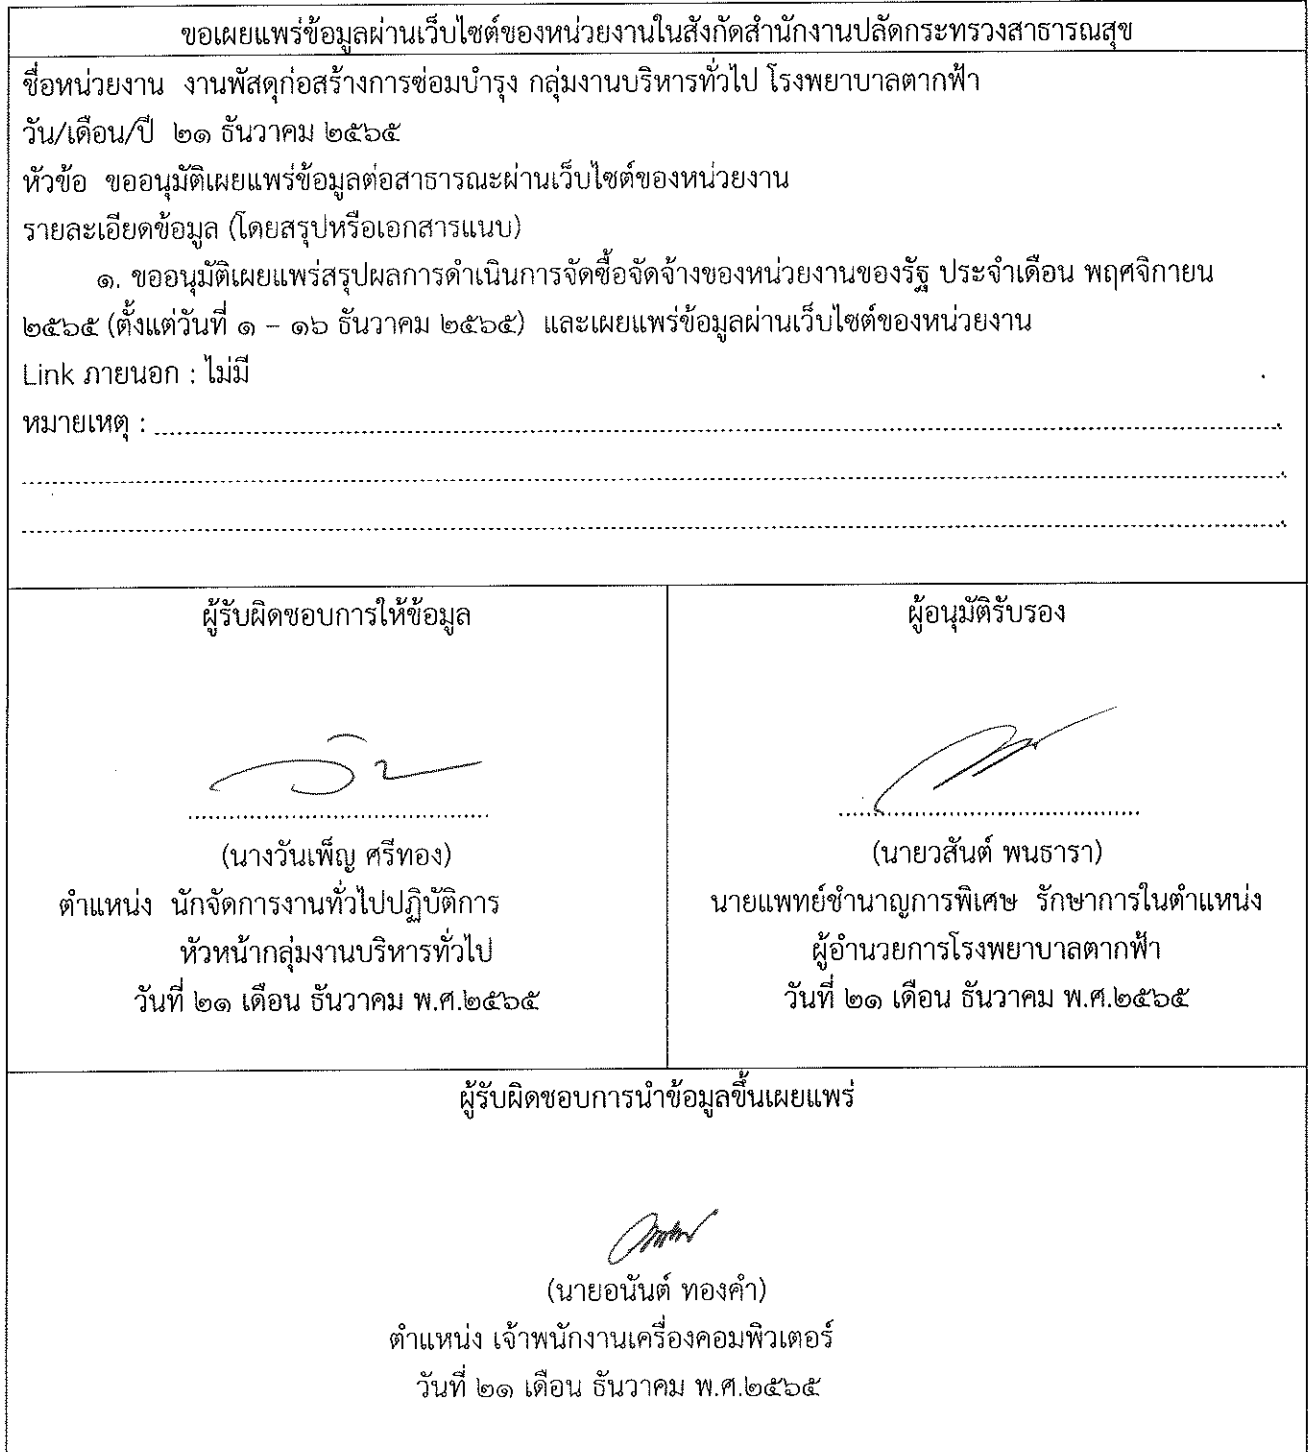 ขอเผยแพร่ข้อมูลผ่านเว็บไซต์ของหน่วยงานในสังกัดสำนักงานปลัดกระทรวงสาธารณสุข
ชื่อหน่วยงาน งานพัสดุก่อสร้างการซ่อมบำรุง กลุ่มงานบริหารทั่วไป โรงพยาบาลตากฟ้า
วัน/เดือน/ปี ๒๑ ธันวาคม ๒๕๖๕
หัวข้อ ขออนุมัติเผยแพร่ข้อมูลต่อสาธารณะผ่านเว็บไซต์ของหน่วยงาน
รายละเอียดข้อมูล (โดยสรุปหรือเอกสารแนบ)
๑. ขออนุมัติเผยแพร่สรุปผลการดำเนินการจัดซื้อจัดจ้างของหน่วยงานของรัฐ ประจำเดือน พฤศจิกายน
๒๕๖๕ (ตั้งแต่วันที่ ๑ – ๑๖ ธันวาคม ๒๕๖๕) และเผยแพร่ข้อมูลผ่านเว็บไซต์ของหน่วยงาน
Link ภายนอก : ไม่มี
หมายเหตุ :
ผู้รับผิดชอบการให้ข้อมูล
(นางวันเพ็ญ ศรีทอง)
ตำแหน่ง นักจัดการงานทั่วไปปฏิบัติการ
หัวหน้ากลุ่มงานบริหารทั่วไป
วันที่ ๒๑ เดือน ธันวาคม พ.ศ.๒๕๖๕
ผู้อนุมัติรับรอง
(นายวสันต์ พนธารา)
นายแพทย์ชำนาญการพิเศษ รักษาการในตำแหน่ง
ผู้อำนวยการโรงพยาบาลตากฟ้า
วันที่ ๒๑ เดือน ธันวาคม พ.ศ.๒๕๖๕
ผู้รับผิดชอบการนำข้อมูลขึ้นเผยแพร่
(นายอนันต์ ทองคำ)
ตำแหน่ง เจ้าพนักงานเครื่องคอมพิวเตอร์
วันที่ ๒๑ เดือน ธันวาคม พ.ศ.๒๕๖๕